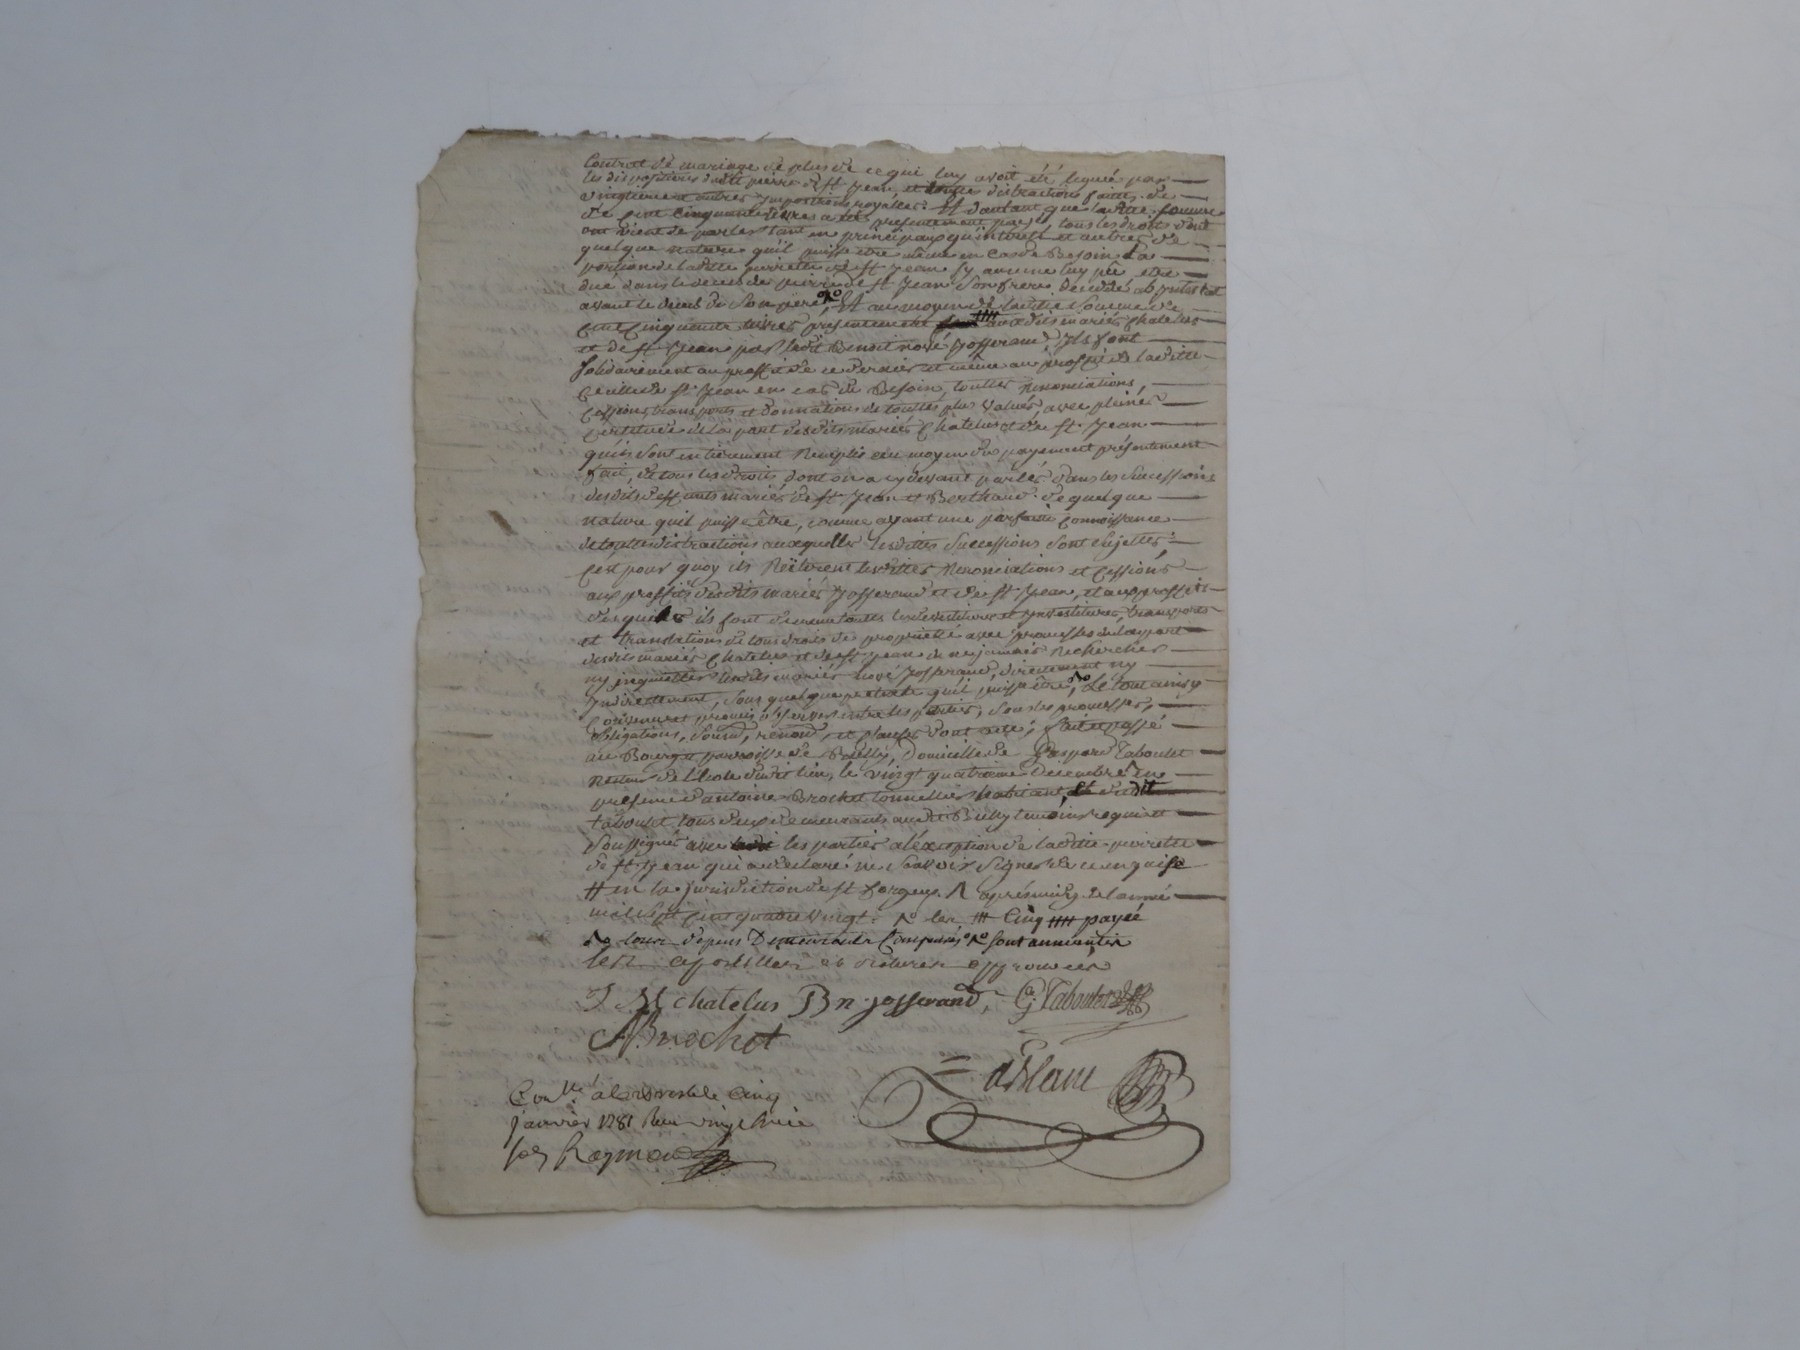 Contrat de mariage de plus de ce qui luy avoit été legué par
les dispositions dudit pierre de st Jean et toutes distractions faittes de
vingtiemes et autres impositions royalles. Et d'autant que laditte somme
de cent cinquante livres a été presentement payée, tous les droits dont
on vient de parler tant en principaux qu'interets et autres de
quelque nature qu'il puisse être même en cas de Besoin la
portion de laditte pierrette de st Jean sy aucune luy peut être
due dans le deces de pierre de st Jean son frere decedé ab intestat
avant le deces de son pere, Et au moyen de laditte somme de
cent cinquante livres presentement aux dits mariés chatelus
et de st Jean par ledit Benoit noyé Josserand, Ils font
solidairement au proffit de ce dernier et même au proffit de laditte
de st Jean en cas de Besoin, touttes renonciations,
cessions, transports et donnations de touttes plus values, avec pleine
certitude de la part desdits mariés Chatelus et de st Jean
qu'ils sont entierement remplis au moyen du payement présentement
fait, de tous les droits dont on a cy devant parlés dans les successions
desdits deffunts mariés de st Jean et Berthaud de quelque
nature quil puisse être, comme ayant une parfaitte connoissance
de touttes distractions auxquelles lesdittes successions sont sujettes
C'est pour quoy ils Réiterent lesdittes Renonciations et Cessions
aux proffits desdits mariés Josserand et de st Jean, et aux proffits
desquels ils font de même touttes devestitures et investitures, transports
et translations de tous droits de propriété avec promesses de la part
desdits mariés Chatelus et de st Jean de ne jamais rechercher
ny inquietter lesdits mariés noyé Josserand, directement ny
indirectement, sous quelque pretexte qu'il puisse être, Le tout ainsy
convenu et promis observer entre les parties, sous les promesses,
obligations, soumd, renond, et clauses dont acte; fait et passé
au Bourg et parroisse de Builly, Domicille de Gaspard Taboulet
Recteur de l'école dudit lieu, le vingt quatrieme Decembre en
presence d'antoine Brochet tonnellier habitant, Et dudit
taboulet tous deux demeurants audit Buily temoins requis et
soussignés avec les parties a l'exception de laditte pierrette
de st Jean qui a declaré ne sçavoir signer de ce enquise
# en la jurisdiction de st forgeux. Λ après midy de l'année
mil sept cent quatre vingt. cinq payée
sont anneantis
apostilles et ratures approuvées
J M chatelus Bn josserand, G. Taboulet
A Brochet
deBlanc
Conllé à le cinq
janvier 1781 Reçu
Raymond